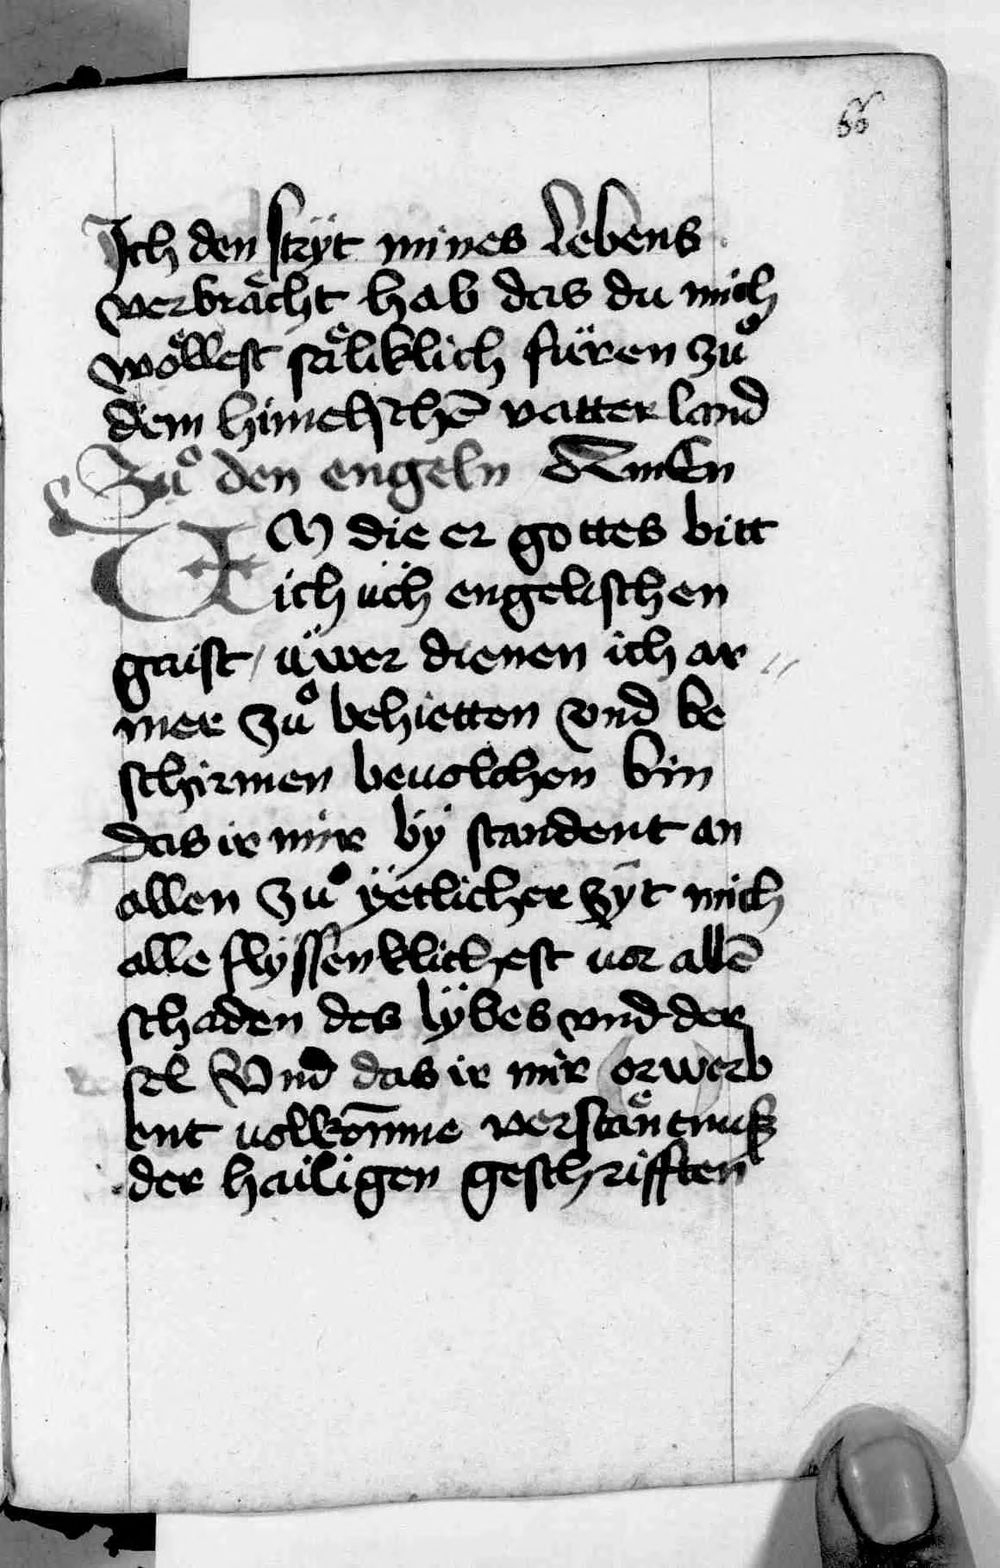 66
Ich den stryt mines lebens
verbrâcht hab das du mich
wo̍llest säliklich füren zuͦ
dem himelschē vatter land
Zuͦ den engeln amen
Um die er gottes bitt
ich üch engelischen
gaist / üwer dienen ich ar //
mer zuͦ behietten vnd be
schirmen beuolchen bin
Das ir mir by standent an
allen zuͦ yetlicher zyt mich
alle flyssenklichest vor allē
schaden des lybes vnd der
sel Vnd das ir mir erwerb
ent volkom̄ne verständtnuß
der hailigen geschrifften